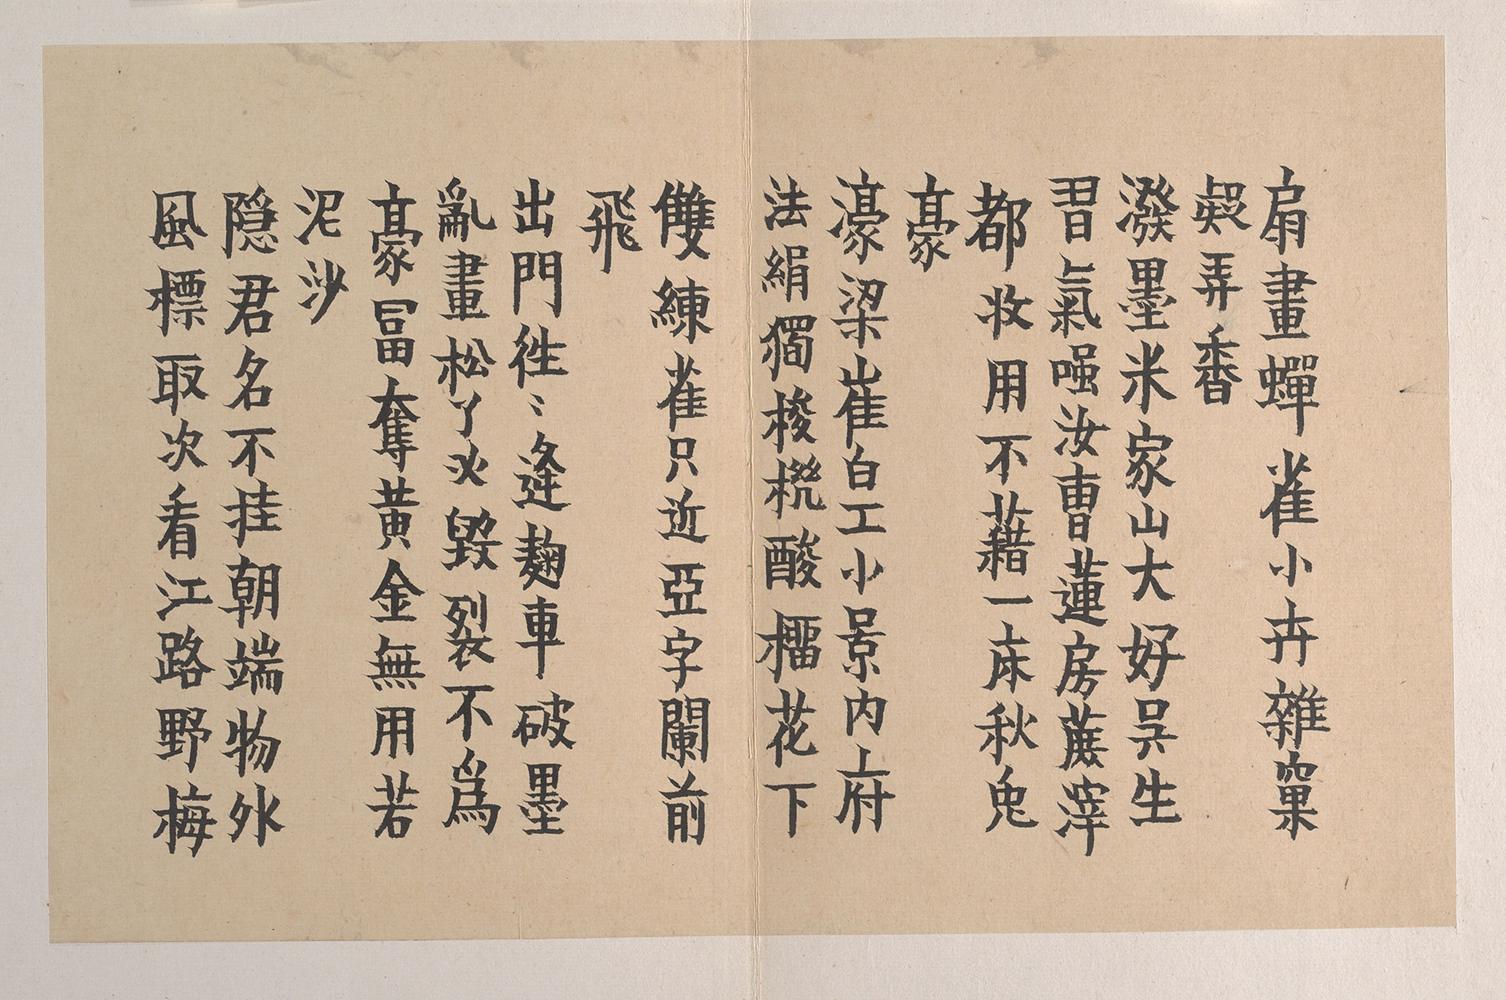 扇畫蟬雀小卉雜窠
弄香
潑墨米家山大好吳生
習氣嗤汝曹蓮房蔗滓
都收用不藉一床秋兔
豪
濠梁崔白工小景內府
法絹獨梭機酸榴花下
雙練雀只近亞字闌前
飛
出門往〻逢麹車破墨
亂畫松丫叉毀裂不為
豪冨奪黃金無用若
泥沙
隱君名不挂朝端物外
風標取次看江路野梅